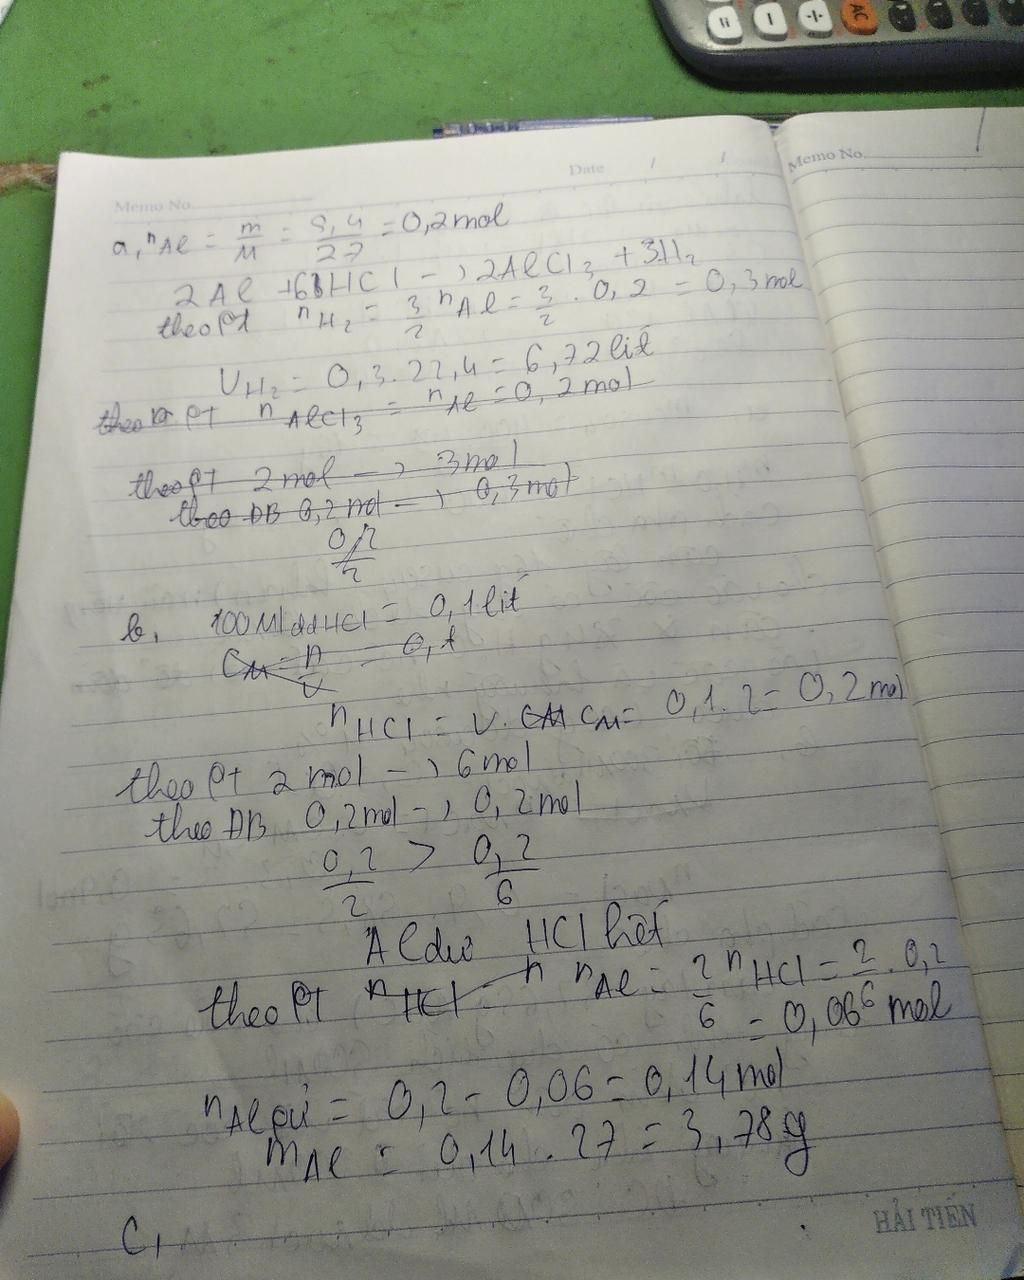 AC
Memo No.
Date / /
Memo No.
a, nAl = m/M = 5,4/27 = 0,2 mol
2Al + 6HCl -> 2AlCl3 + 3H2
theo Pt nH2 = 3/2 nAl = 3/2 . 0,2 = 0,3 mol
VH2 = 0,3.22,4 = 6,72 lít
theo Pt nAlCl3 = nAl = 0,2 mol
theo Pt 2 mol -> 3 mol
theo ĐB 0,2 mol -> 0,3 mol
0,2/2
b, 100Ml dd HCl = 0,1 lít
CM = n/V = 0,1
nHCl = V. CM CM = 0,1.2 = 0,2 mol
theo Pt 2 mol -> 6 mol
theo ĐB 0,2 mol -> 0,2 mol
0,2/2 > 0,2/6
Al dư HCl hết
theo Pt nHCl n nAl = 2/6 nHCl = 2/6 . 0,2
= 0,066 mol
nAl dư = 0,2 - 0,06 = 0,14 mol
mAl = 0,14 . 27 = 3,78 g
C,
HẢI TIẾN